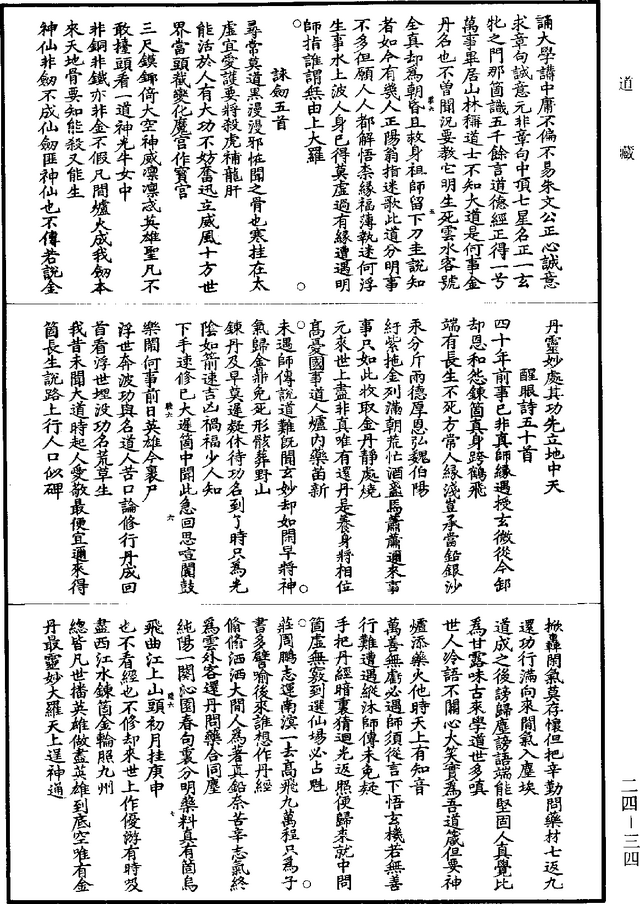 道藏
誦大學講中庸不偏不易朱文公正心誠意
求章句誠意元非章句中頂七星名正一玄
牝之門那箇識五千餘言道德經正得一兮
萬事畢居山林稱道士不知大道是何事金
丹名也不曾聞況要教它明生死雲水客號
全真却為朝昏且救身祖師留下刀圭說知
者如今有幾人正陽翁指迷歌此道分明事
不多但願人人都解悟柰緣福薄執迷何浮
生事水上波人身已得莫虛過有緣遭遇明
師指誰謂無由上大羅
詠劒五首
尋常莫道黑漫漫邪怪聞之骨也寒挂在太
虛宜愛護要將殺虎補龍肝
能活於人有大功不妨奮迅立威風十方世
界當頭截變化魔宮作寶宮
三尺鏌鋣倚大空神威凜凜惑英雄聖凡不
敢擡頭看一道神光牛女中
非銅非鐵亦非金不假凡間爐火成我劒本
來天地骨要知能殺又能生
神仙非劒不成仙劒匪神仙也不傳若說金
丹靈妙處其功先立地中天
醒眼詩五十首
四十年前事已非真師緣遇授玄微從今卸
却恩和怨鍊箇真身跨鶴飛
端有長生不死方常人緣淺豈承當鉛銀沙
汞分斤兩德厚恩弘魏伯陽
紆紫拖金列滿朝荒忙酒盞馬蕭蕭邇來事
事只如此收取金丹靜處燒
元來世上盡非真唯有還丹是養身將相位
高憂國事道人爐內藥苗新
未遇師傳說道難既聞玄妙却如閑早將神
氣歸金鼎免死形骸葬野山
鍊丹及早莫遲疑休待功名到了時只為光
陰如箭速吉凶禍福少人知
下手速修已大遲箇中聞此急回思喧闐鼓
樂閙何事前日英雄今裹尸
浮世奔波功與名道人苦口論修行丹成回
首看浮世埋没功名荒草生
我昔未聞大道時起人愛敬最便宜邇來得
箇長生說路上行人口似碑
掀轟閙氣莫存懷但把辛勤問藥材七返九
還功行滿向來閙氣入塵埃
道成之後謗歸塵謗語端能堅固人真覺比
為甘露味古來學道世多嗔
世人冷語不關心大笑實為吾道箴但要神
爐添藥火他時天上有知音
萬善無虧必遇師須從言下悟玄機若無善
行難遭遇縱沐師傳未免疑
手把丹經暗裏猜迴光返照便歸來就中問
箇虛無竅到選仙場必占魁
莊周鵬志運南溟一去高飛九萬程只為子
書多譬喻後來誰想作丹經
脩脩洒洒大閒人為著真鉛柰苦辛志氣終
為雲外客還丹問藥合同塵
純陽一闋沁園春句裏分明藥料真有箇烏
飛曲江上山頭初月挂庚申
也不看經也不修却來世上作優游有時吸
盡西江水鍊箇金輪照九州
總皆凡世播英雄做盡英雄到底空唯有金
丹最靈妙大羅天上逞神通
二四－三四